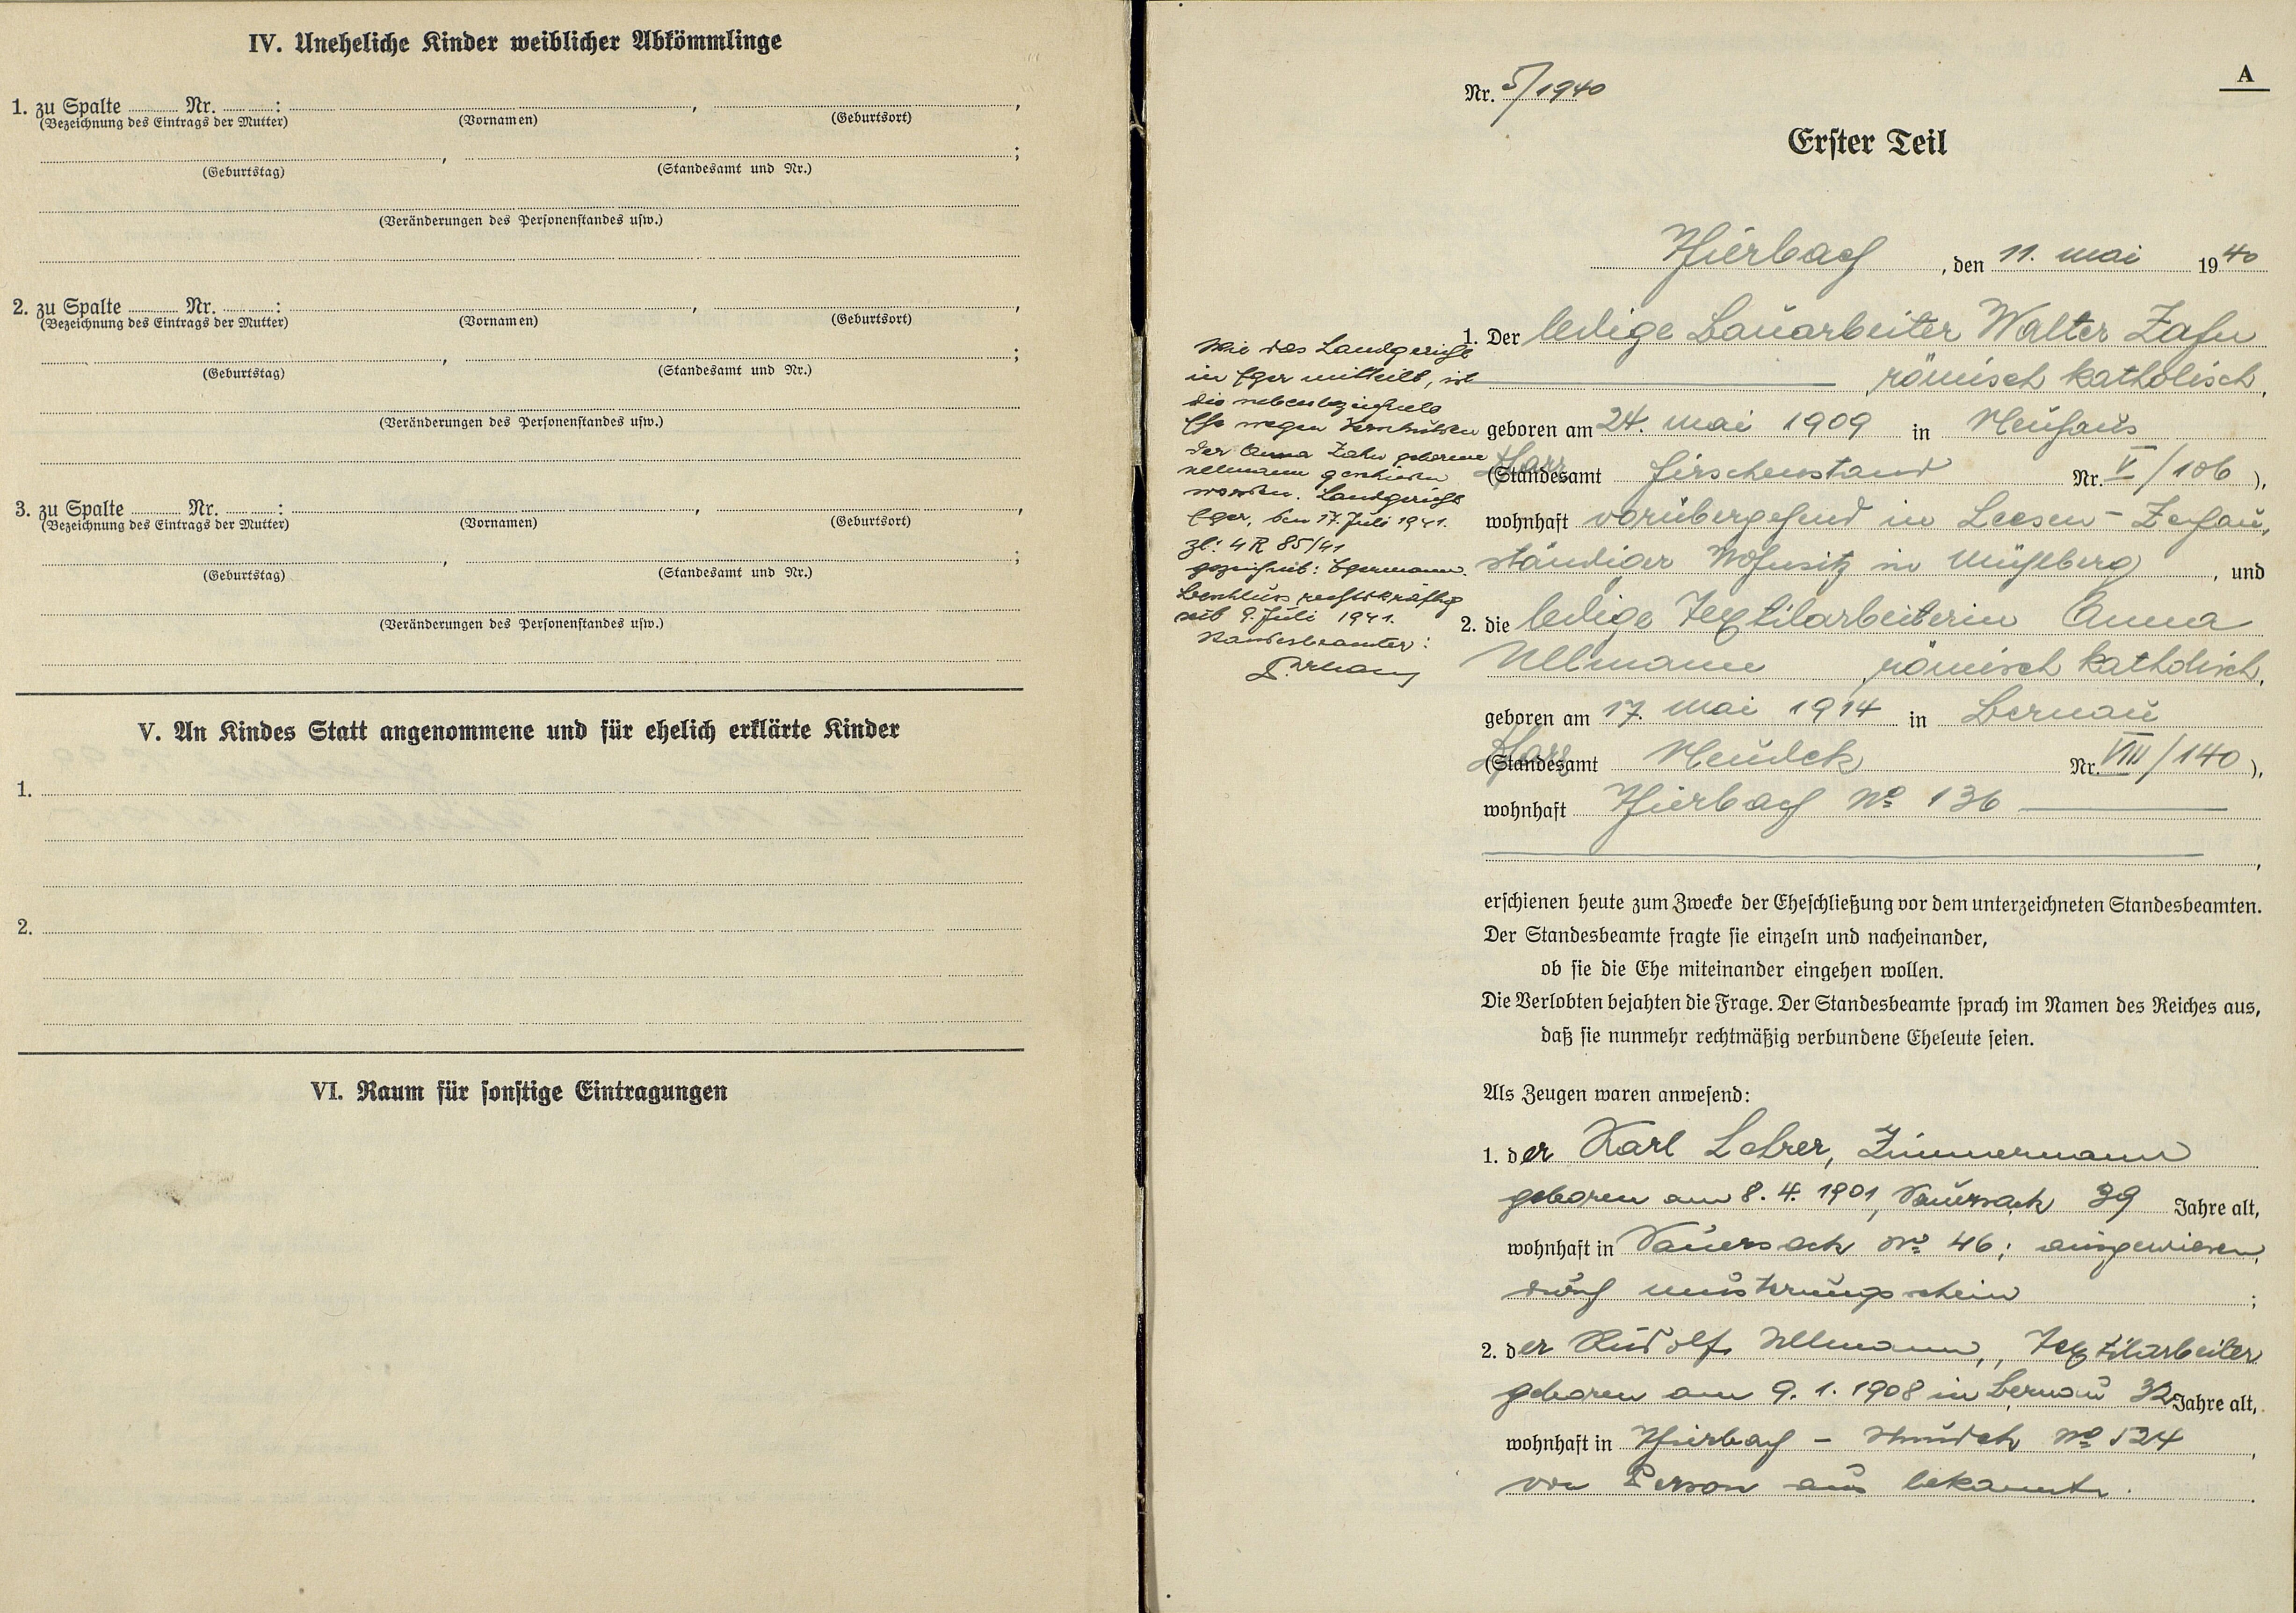 IV. Uneheliche Kinder weiblicher Abkömmlinge
1. zu Spalte ........ Nr. ........ : ........, ........,
(Bezeichnung des Eintrags der Mutter) (Vornamen) (Geburtsort)
........, ........;
(Geburtstag) (Standesamt und Nr.)
(Veränderungen des Personenstandes usw.)
2. zu Spalte ........ Nr. ........ : ........, ........,
(Bezeichnung des Eintrags der Mutter) (Vornamen) (Geburtsort)
........, ........;
(Geburtstag) (Standesamt und Nr.)
(Veränderungen des Personenstandes usw.)
3. zu Spalte ........ Nr. ........ : ........, ........,
(Bezeichnung des Eintrags der Mutter) (Vornamen) (Geburtsort)
........, ........;
(Geburtstag) (Standesamt und Nr.)
(Veränderungen des Personenstandes usw.)
V. An Kindes Statt angenommene und für ehelich erklärte Kinder
1.
2.
VI. Raum für sonstige Eintragungen
A
Nr. 5/1940
Erster Teil
Hierbach, den 11. Mai 1940
1. Der ledige Bauarbeiter Walter Zahn
, römisch katholisch,
geboren am 24. Mai 1909 in Neuhaus
(Standesamt Hirschenstand Nr. V/106),
wohnhaft vorübergehend in Leesen-
ständiger Wohnsitz in Mühlberg, und
2. die ledige Textilarbeiterin Anna
Ullmann, römisch katholisch,
geboren am 17. Mai 1914 in Bernau
(Standesamt Neudek Nr. VIII/140),
wohnhaft Hierbach No 136
erschienen heute zum Zwecke der Eheschließung vor dem unterzeichneten Standesbeamten.
Der Standesbeamte fragte sie einzeln und nacheinander,
ob sie die Ehe miteinander eingehen wollen.
Die Verlobten bejahten die Frage. Der Standesbeamte sprach im Namen des Reiches aus,
daß sie nunmehr rechtmäßig verbundene Eheleute seien.
Als Zeugen waren anwesend:
1. der Karl Lehrer, Zimmermann
geboren am 8. 4. 1901, Sauersack 39 Jahre alt,
wohnhaft in Sauersack No 46; ausgewiesen
durch Musterungsschein;
2. der Rudolf Ullmann, Textilarbeiter
geboren am 9. 1. 1908 in Bernau 32 Jahre alt,
wohnhaft in Hierbach - Neudek No 524,
von Person aus bekannt.
Wie das Landgericht
in Eger mitteilt, ist
die nebenbezeichnete
Ehe wegen Verschulden
der Anna Zahn geborene
Ullmann geschieden
worden. Landgericht
Eger, den 17. Juli 1941.
Zl: 4 R 85/41
gezeichnet:
Beschluss rechtskräftig
seit 9. Juli 1941.
Standesbeamter: